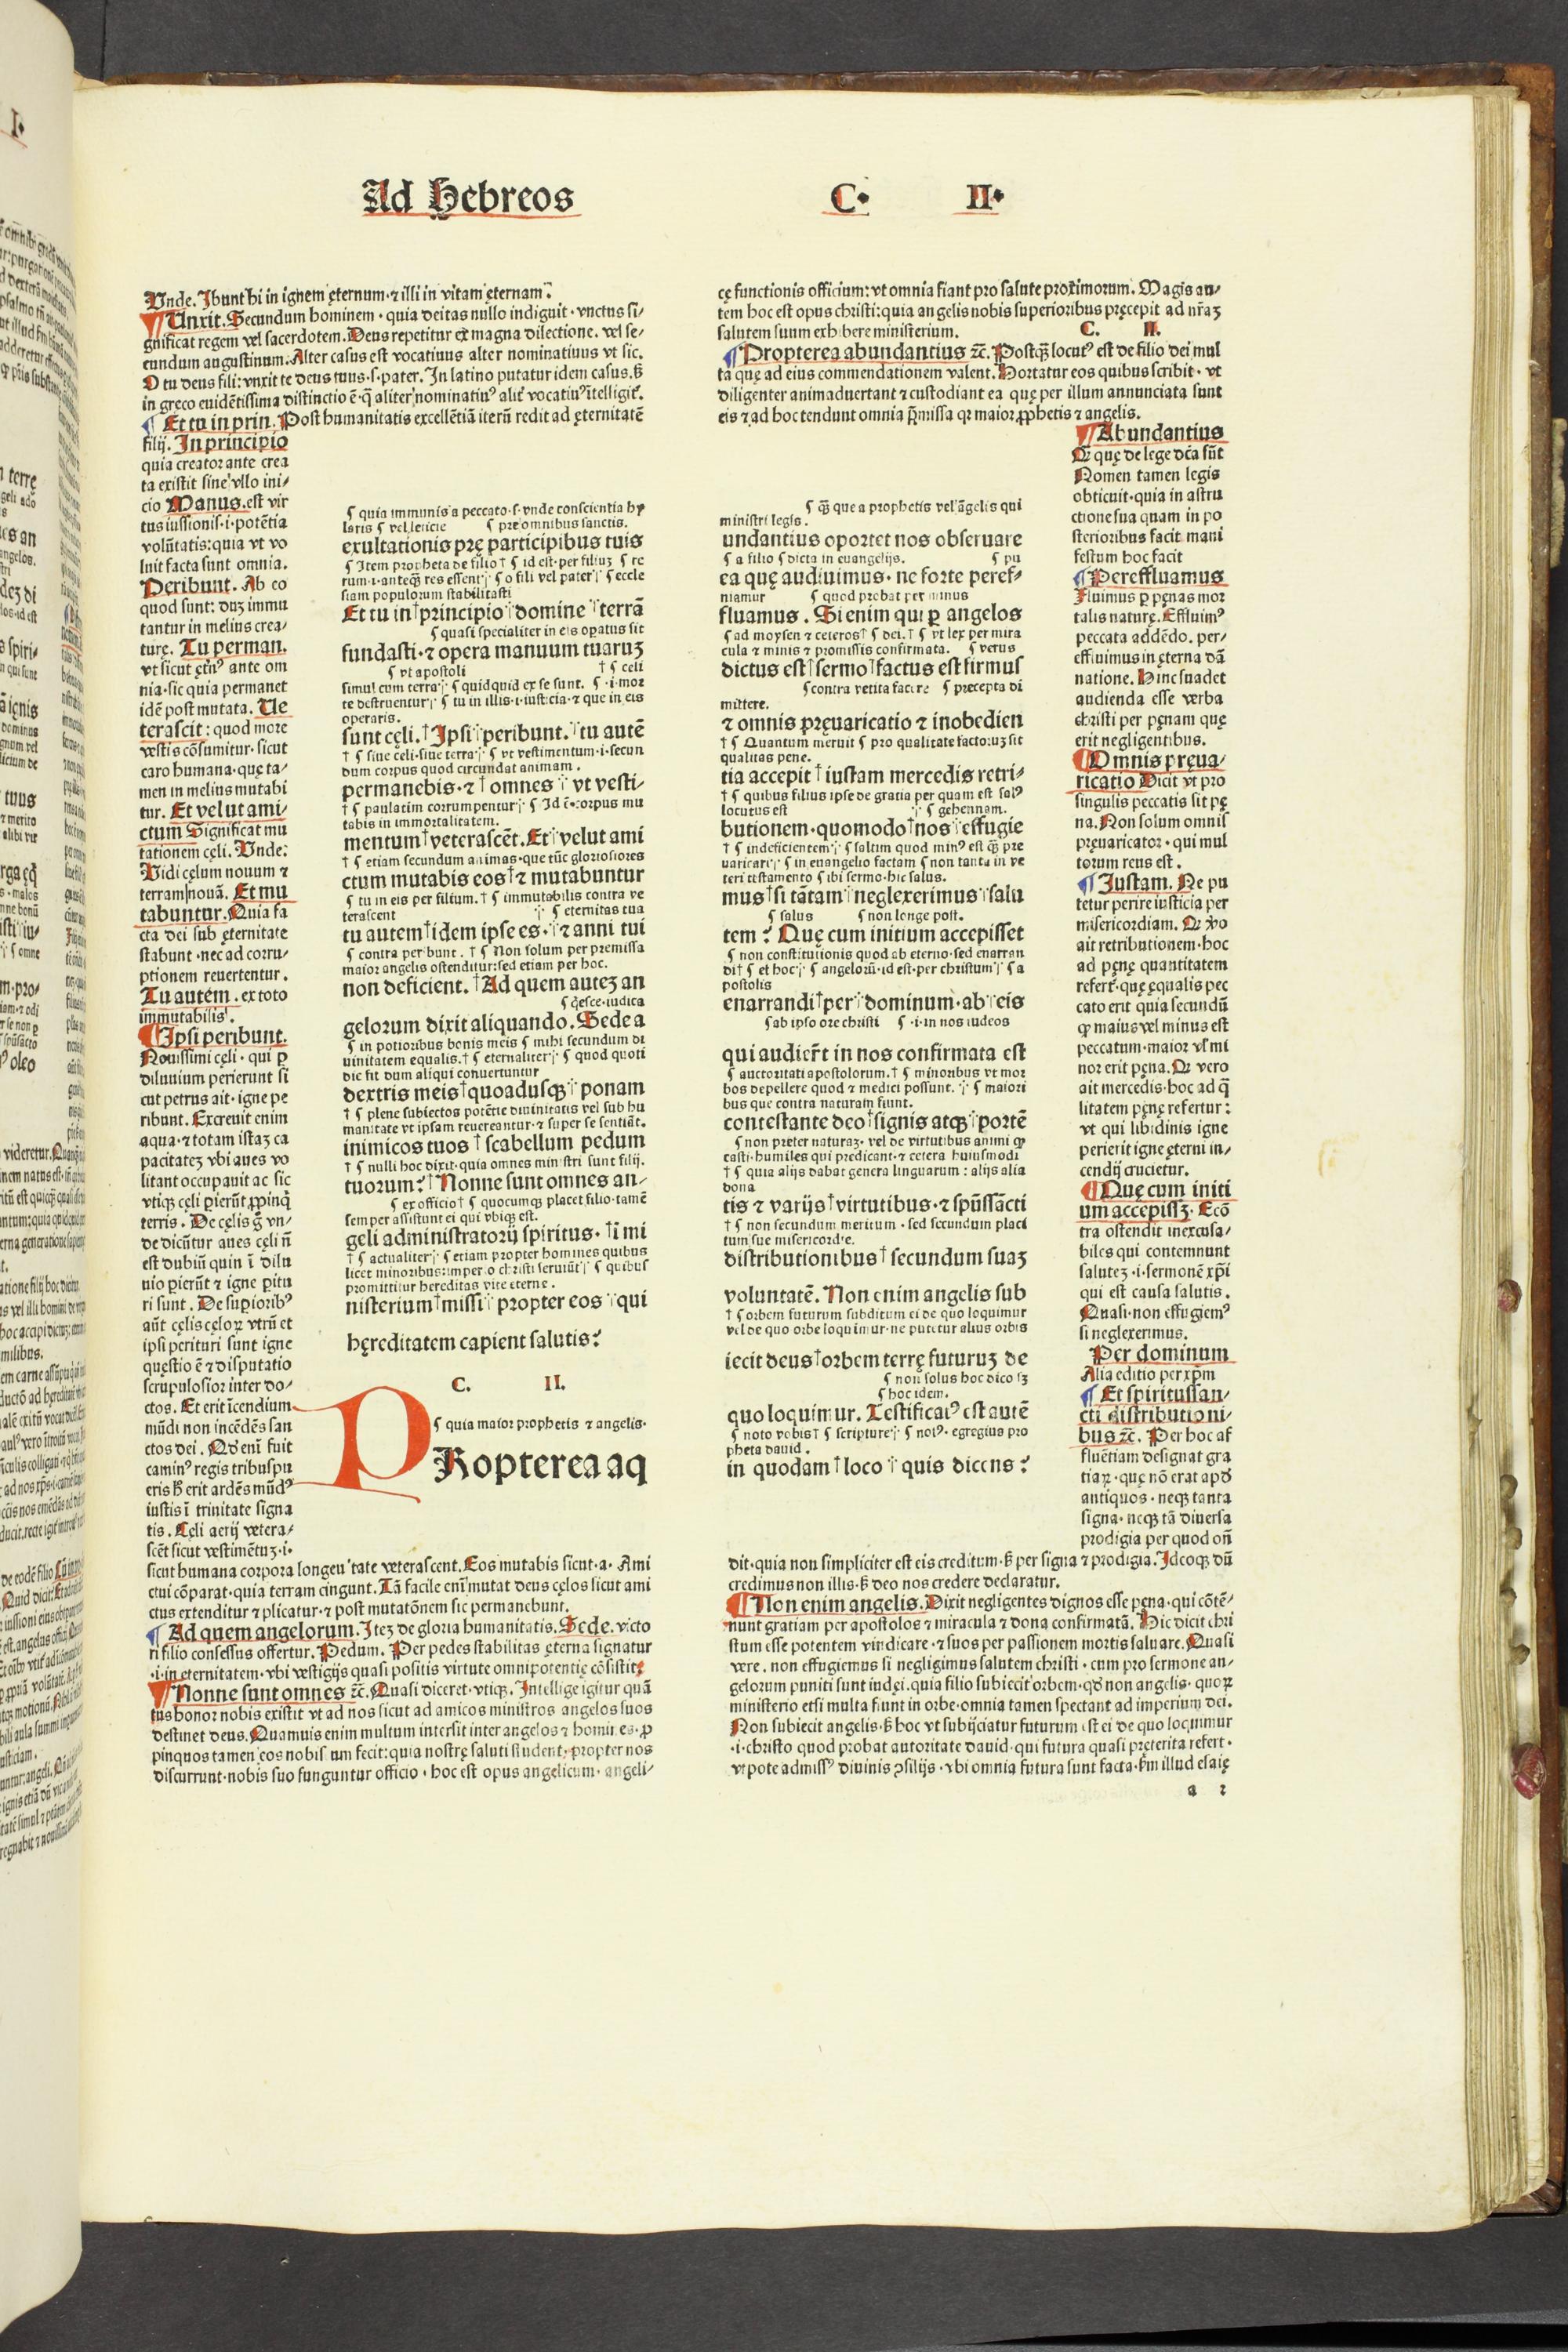 Ad Hebreos C. II.
Unde. Ibunt hi in ignem ęternum. ⁊ illi in vitam ęternam.
Unxit. Secundum hominem. quia deitas nullo indiguit. vnctus si-
gnificat regem vel sacerdotem. Deus repetitur ex magna dilectione. vel se-
cundum augustinum. Alter casus est vocatiuus alter nominatiuus vt sic.
O tu deus fili: vnxit te deus tuus. s. pater. In latino putatur idem casus.
in greco euidētissima distinctio ē. aliter nominatiuꝰ alit vocatiuꝰ ītelligit.
Et tu in prin. Post humanitatis excellētiā iterū redit ad ęternitatē
filij. In principio
quia creator ante crea
ta existit sine vllo ini-
cio Manus. est vir
tus iussionis. i. potētia
volūtatis: quia vt vo
luit facta sunt omnia.
Peribunt. Ab eo
quod sunt: duȝ immu
tantur in melius crea-
turę. Tu perman.
vt sicut ętnꝰ ante om
nia. sic quia permanet
idē post mutata. Ve
terascit: quod more
vestis cōsumitur. sicut
caro humana. quę ta-
men in melius mutabi
tur. Et velut ami-
ctum Significat mu
tationem cęli. Unde:
Vidi cęlum nouum ⁊
terram nouā. Et mu
tabuntur. Quia fa
cta dei sub ęternitate
stabunt. nec ad corru-
ptionem reuertentur.
Tu autem. ex toto
immutabilis.
Ipsi peribunt.
Nouissimi cęli. qui ꝑ
diluuium perierunt si
cut petrus ait. igne pe
ribunt. Excreuit enim
aqua. ⁊ totam istaȝ ca
pacitateȝ vbi aues vo
litant occupauit ac sic
vtiqꝫ cęli ꝑierūt ꝓpinq
terris. De cęlis g vn-
de dicūtur aues cęli n
est dubiū quin ī dilu
uio ꝑierūt ⁊ igne ꝑitu
ri sunt. De suꝑioribꝰ
aūt cęlis cęloꝝ vtrū et
ipsi perituri sunt igne
quęstio ē ⁊ disputatio
scrupulosior inter do-
ctos. Et erit īcendium
mūdi non incēdēs san
ctos dei. Qd eni fuit
caminꝰ regis tribus pu
eris h erit ardēs mūdꝰ
iustis ī trinitate signa
tis. Cęli aerij vetera-
scēt sicut vestimētuȝ. i.
sicut humana corpora longeuitate veterascent. Eos mutabis sicut. a. Ami
ctui cōparat. quia terram cingunt. Tā facile eni mutat deus cęlos sicut ami
ctus extenditur ⁊ plicatur. ⁊ post mutatōnem sic permanebunt.
Ad quem angelorum. Iteȝ de gloria humanitatis. Sede. victo
ri filio consessus offertur. Pedum. Per pedes stabilitas ęterna signatur
.i. in ęternitatem. vbi vestigijs quasi positis virtute omnipotentię cōsistit.
Nonne sunt omnes ⁊c. Quasi diceret. vtiqꝫ. Intellige igitur quā
tus honor nobis existit vt ad nos sicut ad amicos ministros angelos suos
destinet deus. Quamuis enim multum intersit inter angelos ⁊ homines. ꝓ
pinquos tamen eos nobis um fecit: quia nostrę saluti student. propter nos
discurrunt. nobis suo funguntur officio. hoc est opus angelicum. angeli-
¶ quia immunis a peccato. s. vnde conscientia hy
laris ¶ vel leticie ¶ pre omnibus sanctis.
exultationis prę participibus tuis
¶ Item propheta de filio † ¶ id est. per filiuȝ ¶ re
rum. i. anteqꝫ res essent ¶ o fili vel pater ¶ eccle
siam populorum stabilitasti
Et tu in † principio domine terrā
¶ quasi specialiter in eis operatus sit
fundasti. ⁊ opera manuum tuaruȝ
¶ vt apostoli † ¶ celi
simul cum terra ¶ quidquid ex se sunt. ¶ .i. mor
te destruentur ¶ tu in illis. i. iusticia. ⁊ que in eis
operaris.
sunt cęli. † Ipsi peribunt. tu autē
† ¶ siue celi. siue terra ¶ vt vestimentum. i. secun
dum corpus quod circundat animam.
permanebis. ⁊ † omnes vt vesti-
† ¶ paulatim corrumpentur ¶ Id ē. corpus mu
tabis in immortalitatem.
mentum † veterascēt. Et velut ami
† ¶ etiam secundum animas. que tūc gloriosiores
ctum mutabis eos † ⁊ mutabuntur
¶ tu in eis per filium. † ¶ immutabilis contra ve
terascent ¶ eternitas tua
tu autem † idem ipse es. ⁊ anni tui
¶ contra peribunt. † ¶ Non solum per premissa
maior angelis ostenditur: sed etiam per hoc.
non deficient. † Ad quem auteȝ an
¶ qesce. iudica
gelorum dixit aliquando. Sede a
¶ in potioribus bonis meis ¶ mihi secundum di
uinitatem equalis. † ¶ eternaliter ¶ quod quoti
die fit dum aliqui conuertuntur
dextris meis † quoadusqꝫ ponam
† ¶ plene subiectos potētie diuinitatis vel sub hu
manitate vt ipsam reuereantur. ⁊ super se sentiāt.
inimicos tuos † scabellum pedum
† ¶ nulli hoc dixit. quia omnes ministri sunt filij.
tuorum? † Nonne sunt omnes an-
¶ ex officio † ¶ quocumqꝫ placet filio. tamē
semper assistunt ei qui vbiqꝫ est.
geli administratorij spiritus. † ī mi
† ¶ actualiter ¶ etiam propter homines quibus
licet minoribus: imperio christi seruiūt ¶ quibus
promittitur hereditas vite eterne.
nisterium † missi propter eos qui
hęreditatem capient salutis?
C. II.
¶ quia maior prophetis ⁊ angelis.
PRopterea aq
cę functionis officium: vt omnia fiant pro salute proximorum. Magis au-
tem hoc est opus christi: quia angelis nobis superioribus pręcepit ad nraȝ
salutem suum exhibere ministerium. C. II.
Propterea abundantius ⁊c. Postqꝫ locutꝰ est de filio dei mul
ta quę ad eius commendationem valent. Hortatur eos quibus scribit. vt
diligenter animaduertant ⁊ custodiant ea quę per illum annunciata sunt
eis ⁊ ad hoc tendunt omnia p̄missa qꝫ maior ꝓphetis ⁊ angelis.
¶ qꝫ que a prophetis vel āgelis qui
ministri legis.
undantius oportet nos obseruare
¶ a filio ¶ dicta in euangelijs. ¶ pu
ea quę audiuimus. ne forte peref-
niamur ¶ quod probat per minus
fluamus. Si enim qui ꝑ angelos
¶ ad moysen ⁊ ceteros † ¶ dei. † ¶ vt lex per mira
cula ⁊ minis ⁊ promissis confirmata. ¶ verus
dictus est † sermo † factus est firmus
¶ contra vetita facere ¶ precepta di
mittere.
⁊ omnis pręuaricatio ⁊ inobedien
† ¶ Quantum meruit ¶ pro qualitate factoruȝ sit
qualitas pene.
tia accepit † iustam mercedis retri-
† ¶ quibus filius ipse de gratia per quam est salꝰ
locutus est ¶ gehennam.
butionem. quomodo † nos effugie
† ¶ indeficientem ¶ saltim quod minꝰ est qꝫ pre
uaricari ¶ in euangelio factam ¶ non tanta in ve
teri testamento ¶ ibi sermo. hic salus.
mus † si tātam neglexerimus salu
¶ salus ¶ non longe post.
tem? Quę cum initium accepisset
¶ non constitutionis quod ab eterno. sed enarran
di † ¶ et hoc ¶ angelorū. id est. per christum ¶ a
postolis
enarrandi † per dominum. ab eis
¶ ab ipso ore christi ¶ .i. in nos iudeos
qui audiert in nos confirmata est
¶ auctoritati apostolorum. † ¶ minoribus vt mor
bos depellere quod ⁊ medici possunt. ¶ maiori
bus que contra naturam fiunt.
contestante deo † signis atqꝫ portē
¶ non preter naturaȝ. vel de virtutibus animi
casti. humiles qui predicant. ⁊ cetera huiusmodi
† ¶ quia alijs dabat genera linguarum: alijs alia
dona
tis ⁊ varijs † virtutibus. ⁊ spūssācti
† ¶ non secundum meritum. sed secundum placi
tum sue misericordie.
distributionibus † secundum suaȝ
voluntatē. Non enim angelis sub
† ¶ orbem futurum subditum ei de quo loquimur
vel de quo orbe loquimur. ne putetur alius orbis
iecit deus † orbem terrę futuruȝ de
¶ non solus hoc dico sȝ
¶ hoc idem.
quo loquimur. Testificatꝰ est autē
¶ noto vobis † ¶ scripture ¶ noiꝰ. egregius pro
pheta dauid.
in quodam † loco quis dicens?
Abundantius
Qꝫ quę de lege dca sūt
Nomen tamen legis
obticuit. quia in astru
ctione sua quam in po
sterioribus facit mani
festum hoc facit
Pereffluamus
Fluimus ꝑ pęnas mor
talis naturę. Effluimꝰ
peccata addēdo. per-
effluimus in ęterna dā
natione. Hinc suadet
audienda esse verba
christi per pęnam quę
erit negligentibus.
Omnis pręua-
ricatio Dicit vt pro
singulis peccatis sit pę
na. Non solum omnis
pręuaricator. qui mul
torum reus est.
Iustam. Ne pu
tetur perire iusticia per
misericordiam. Qꝫ vo
ait retributionem. hoc
ad pęnę quantitatem
refert. quę ęqualis pec
cato erit quia secundū
maius vel minus est
peccatum. maior vl mi
nor erit pęna. Qꝫ vero
ait mercedis. hoc ad q
litatem pęnę refertur:
vt qui libidinis igne
perierit igne ęterni in-
cendij crucietur.
Quę cum initi
um accepissȝ. Ecō
tra ostendit inexcusa-
biles qui contemnunt
saluteȝ. i. sermonē xp̄i
qui est causa salutis.
Quasi. non effugiemꝰ
si neglexerimus.
Per dominum
Alia editio per xp̄m
Et spiritussan-
cti distributioni-
bus ⁊c. Per hoc af
fluētiam designat gra
tiaꝝ. quę nō erat apd
antiquos. neqꝫ tanta
signa. neqꝫ tā diuersa
prodigia per quod on
dit. quia non simpliciter est eis creditum. per signa ⁊ prodigia. Ideoqꝫ dū
credimus non illis. deo nos credere declaratur.
Non enim angelis. Dixit negligentes dignos esse pęna. qui cōtē-
nunt gratiam per apostolos ⁊ miracula ⁊ dona confirmatā. Hic dicit chri
stum esse potentem vindicare. ⁊ suos per passionem mortis saluare. Quasi
vere. non effugiemus si negligimus salutem christi. cum pro sermone an-
gelorum puniti sunt iudęi. quia filio subiecit orbem. qd non angelis. quoꝝ
ministerio etsi multa fiunt in orbe. omnia tamen spectant ad imperium dei.
Non subiecit angelis. hoc vt subijciatur futurum est ei de quo loquimur
.i. christo quod probat autoritate dauid. qui futura quasi pręterita refert.
vtpote admissꝰ diuinis ꝯsilijs. vbi omnia futura sunt facta. illud esaię
a 2